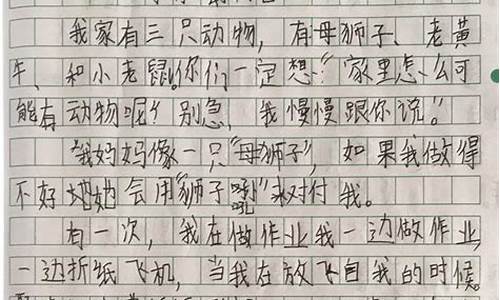 我家有三只动物，有母狮子、老黄
牛、和小老鼠。你们一定想：“家里怎么可
能有动物呢？”别急，我慢慢跟你说。”
“我妈妈像一只“母狮子”，如果我做得
不好她会用“狮子吼”来对付我。
有一次，我在做作业我一边做作业，
一边折纸飞机，当我在放飞自我的时候。